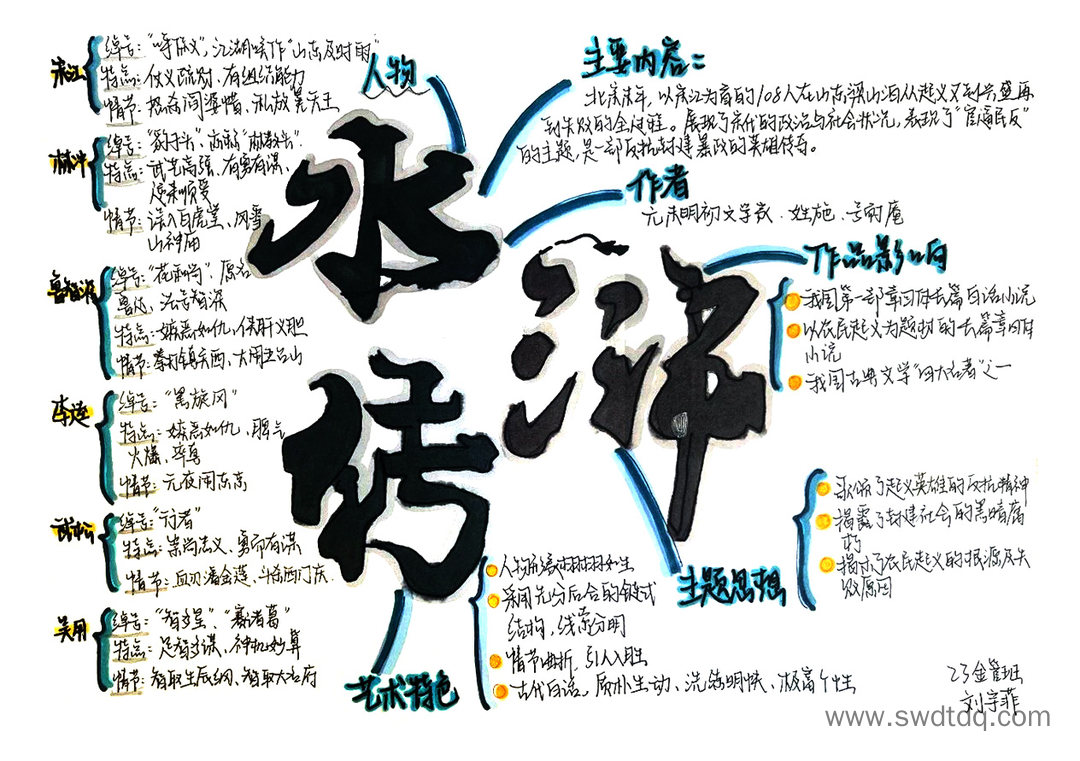 水浒传
人物
宋江
绰号："呼保义"，江湖唤作"山东及时雨"
特点：仗义疏财、有组织能力
情节：怒杀阎婆惜、私放晁天王
林冲
绰号："豹子头"，亦称"林教头"
特点：武艺高强、有勇有谋、
逆来顺受
情节：误入白虎堂、风雪
山神庙
鲁智深
绰号："花和尚"，原名
鲁达，法号智深
特点：嫉恶如仇、侠肝义胆
情节：拳打镇关西、大闹五台山
李逵
绰号："黑旋风"
特点：嫉恶如仇、脾气
火爆、率真
情节：元夜闹东京
武松
绰号："行者"
特点：崇尚忠义、勇而有谋
情节：血刃潘金莲、斗杀西门庆
吴用
绰号："智多星"、"赛诸葛"
特点：足智多谋、神机妙算
情节：智取生辰纲、智取大名府
主要内容：
北宋末年，以宋江为首的108人在山东梁山泊从起义
到失败的全过程。展现了宋代的政治与社会状况，表现了"官逼民反"
的主题，是一部反抗封建暴政的英雄传奇。
作者
元末明初文学家，姓施，名耐庵
作品影响
我国第一部章回体长篇白话小说
以农民起义为题材的长篇章回体
小说
我国古典文学"四大名著"之一
主题思想
歌颂了起义英雄的反抗精神
揭露了封建社会的黑暗腐
朽
揭示了农民起义的根源及失
败原因
艺术特色
人物形象栩栩如生
采用先分后合的链式
结构，线索分明
情节曲折，引人入胜
古代白话，质朴生动、洗练明快、极富个性
23金管班
刘宇菲
www.swdtdq.com